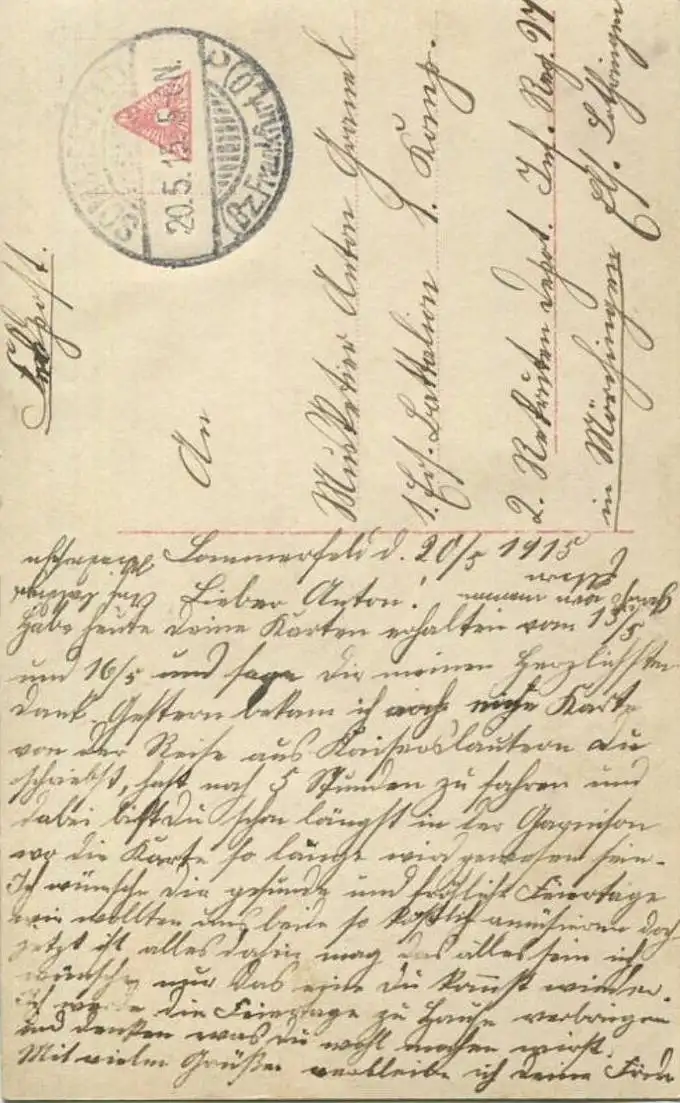 SOMMERFELD
20.5.15. 5-6N.
(Bz. Frankfurt O.)
Feldpost.
An
Musketier Anton
1. Ers. Battalion 1. Komp.
2. Rekruten Depot. Inf. Reg. 97
in Mörchingen Els. Lothringen
Sommerfeld d. 20/5 1915
Lieber Anton!
Habe heute deine Karten erhalten vom 15/5
um 16/5 und sage Dir meinen Herzlichsten
Dank. Gestern bekam ich noch eine Karte
von der Reise aus Kaiserslautern du
schriebst, hast noch 5 Stunden zu fahren und
dabei bist Du schon längst in der Garnison
wo die Karte so lange wird gewesen sein.
Ich wünsche Dir gesunde und fröhliche Feiertage
wir wollten uns beide so köstlich amüsieren doch
jetzt ist alles dahin mag das alles sein ich
wünsche nur das eine Du kommst wieder.
Ich werde die Feiertage zu Hause verbringen
und denken was Du wohl machen wirst.
Mit vielen Grüßen verbleibe ich deine